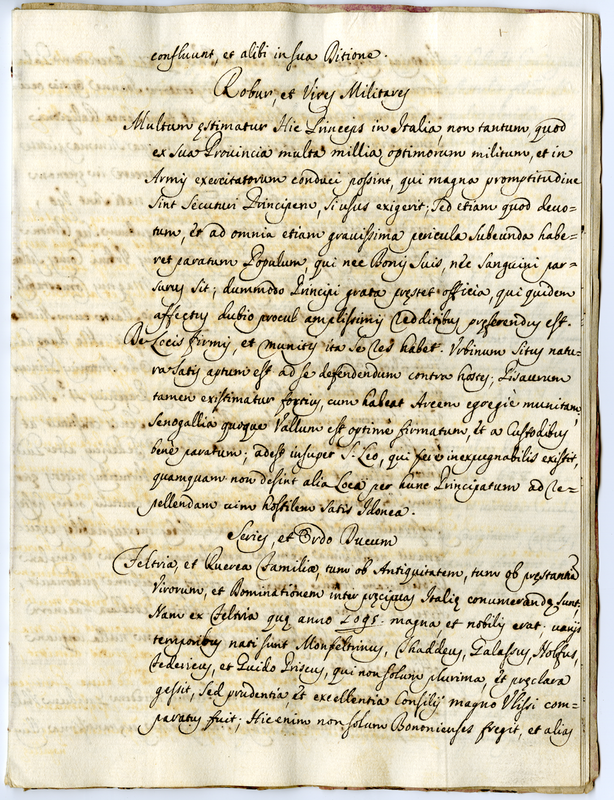 confluunt, et alibi in sua Ditione.
Robur, et Vires Militares
Multum ęstimatur Hic Princeps in Italia, non tantum, quod
ex sua Provincia multa millia optimorum militum, et in
Armis exercitatorum conduci possint, qui magna promptitudine
sint secuturi Principem, si usus exigerit; Sed etiam quod devo=
tum, et ad omnia etiam gravissima pericula subeunda habe=
ret paratum Populum, qui nec Bonis suis, nec sanguini par=
surus sit; dummodo Principi grata pręstet officia, qui quidem
affectus dubio procul amplissimis redditibus pręferendus est.
De Locis firmis, et munitis ita se res habet. Urbinum situs natu=
ra satis aptum est ad se defendendum contra hostes; Pisaurum
tamen existimatur fortius, cum habeat Arcem egregie munitam,
Senogallia quoque Vallum est optime firmatum, et a Custodibus
bene paratum; adest insuper S. Leo, qui fere inexpugnabilis existit,
quamquam non desint alia Loca per hunc Principatum ad re=
pellendam vim hostilem satis Idonea.
Series, et Ordo Ducum
Feltria, et Querea Familiæ, tum ob Antiquitatem, tum ob pręstantia
Virorum, et Dominationem inter pręcipuas Italię conumerandę sunt.
Nam ex Feltria quę anno 1095. magna et nobilis erat, varijs
temporibus nati sunt Monfeltrinus, Thaddeus, Galassus, Nolfus,
Federicus, et Guido Priscus, qui non solum plurima, et pręclara
gessit, sed prudentia, et excellentia Consilij magno Ulissi com=
paratus fuit; Hic enim non solum Bononienses fregit, et alias